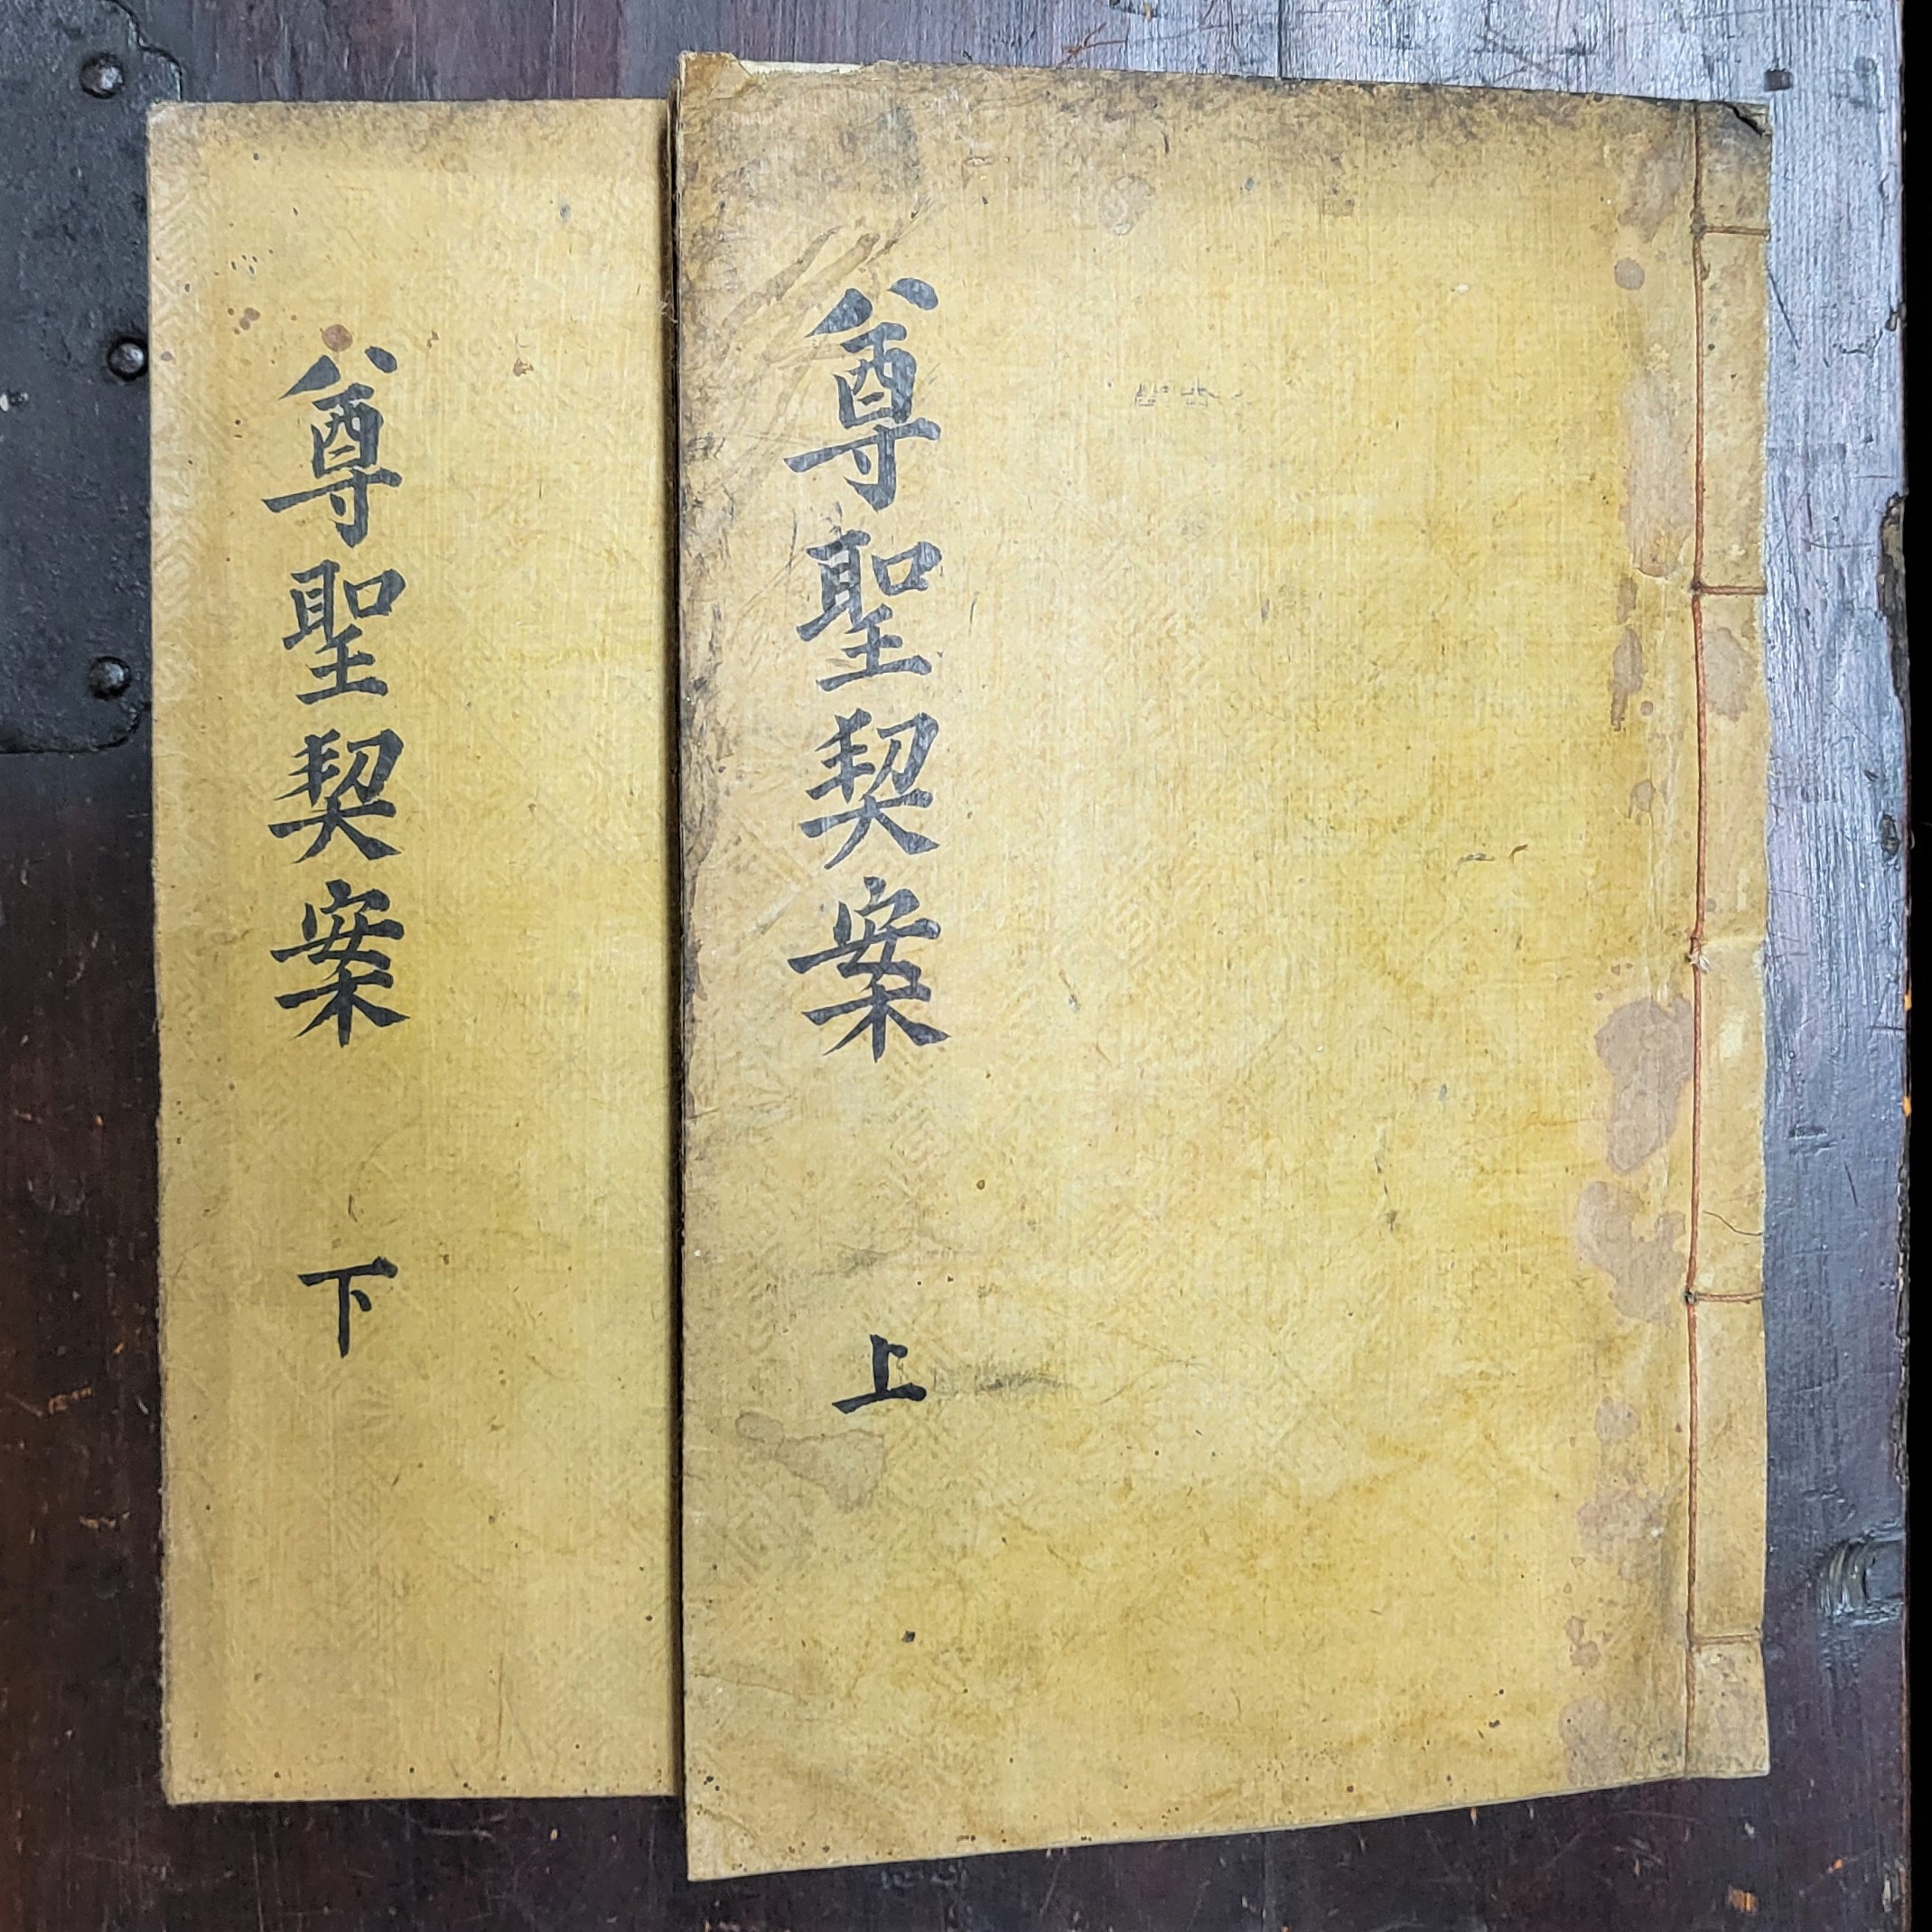 尊聖契案 上
尊聖契案 下